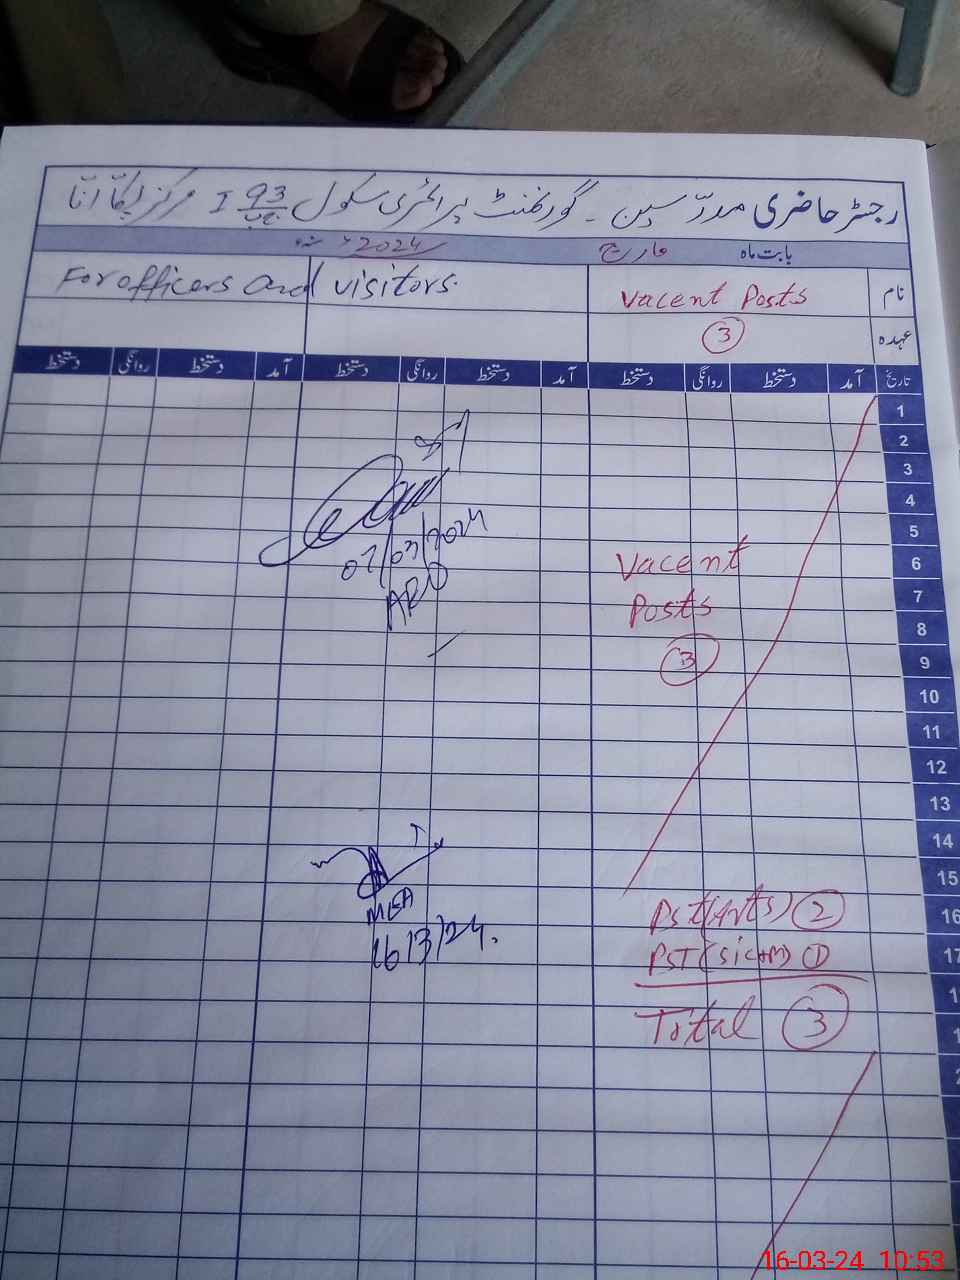 رجسٹر حاضری مدرسین ۔ گورنمنٹ پرائمری سکول 93 I مرکز
بابت ماہ مارچ 2024ء
نام
Vacent Posts
For officers and visitors.
عہدہ
3
تاریخ آمد دستخط روانگی دستخط آمد دستخط روانگی دستخط آمد دستخط روانگی دستخط
1
2
3
4
5
6
7
8
9
10
11
12
13
14
15
16
17
07/03/2024
Vacent
Posts
3
MEA
16/3/24.
Pst (Arts) 2
PST (Sic+M) 1
Total 3
16-03-24 10:53